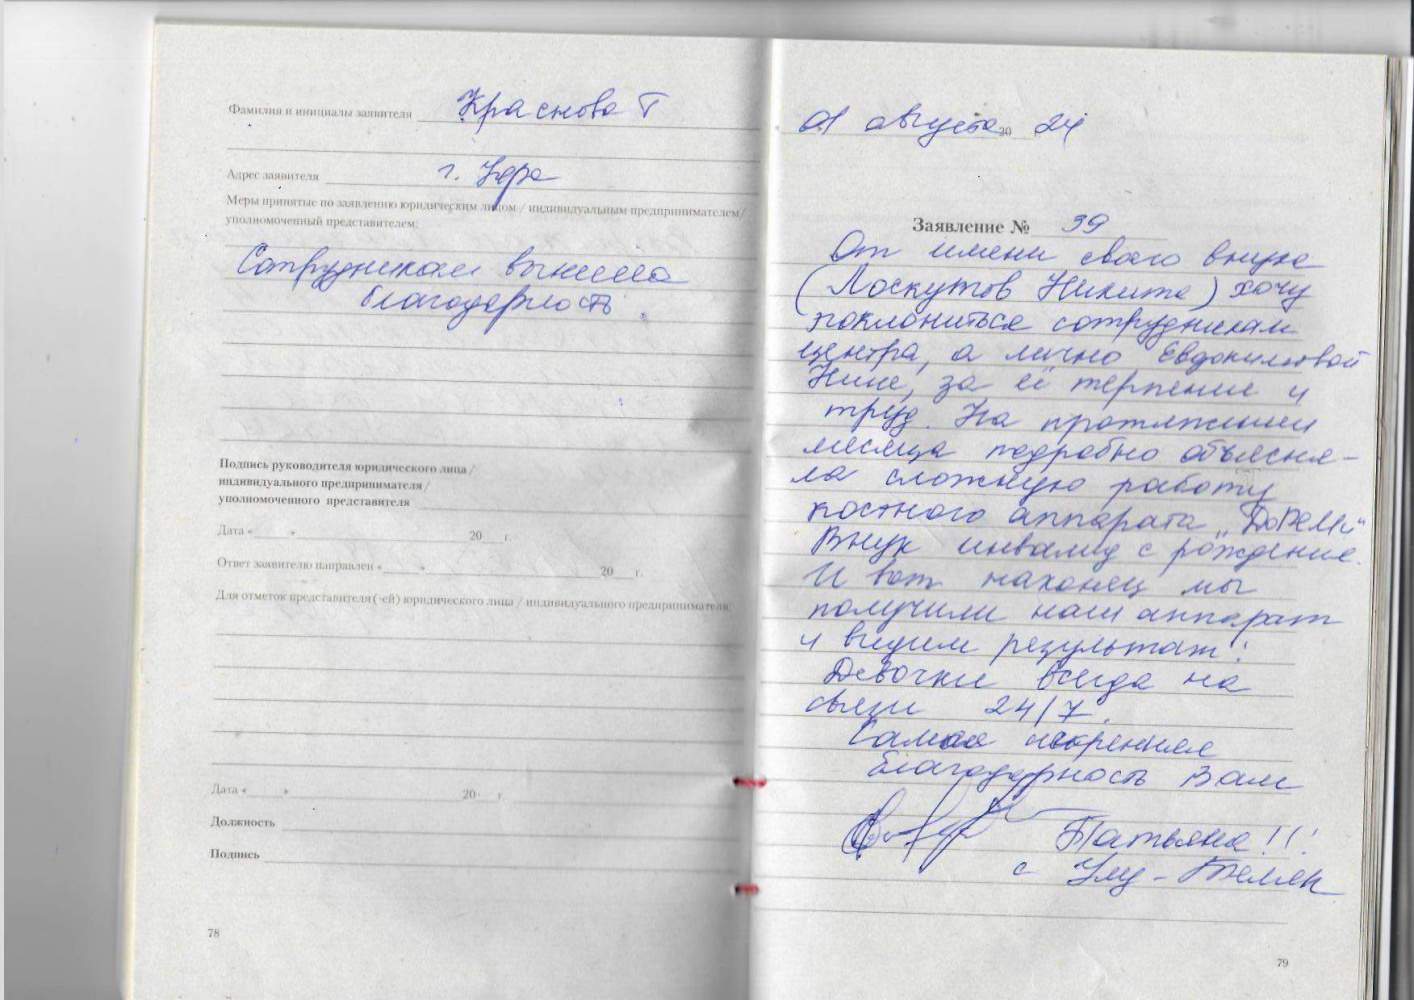 Фамилия и инициалы заявителя Краснова Т
Адрес заявителя г. Уфа
Меры принятые по заявлению юридическим лицом / индивидуальным предпринимателем/
уполномоченный представителем:
Сотрудникам вынесена
благодарность.
Подпись руководителя юридического лица/
индивидуального предпринимателя/
уполномоченного представителя
Дата « » 20 г.
Ответ заявителю направлен « » 20 г.
Для отметок представителя(-ей) юридического лица / индивидуального предпринимателя:
Дата « » 20 г
Должность
Подпись
78
01 августа 20 24
Заявление № 39
От имени своего внука
(Лоскутов Никита) хочу
поклониться сотрудникам
центра, а лично Евдокимовой
Нине, за её терпение и
труд. На протяжении
месяца подробно объясня-
ла сложную работу
костного аппарата „ДоРЕМи“
Внук инвалид с рождение.
И вот наконец мы
получили наш аппарат
и видим результат!
Девочки всегда на
связи 24/7.
Самая искренняя
благодарность Вам
Татьяна!!!
с Улу-Теляк
79